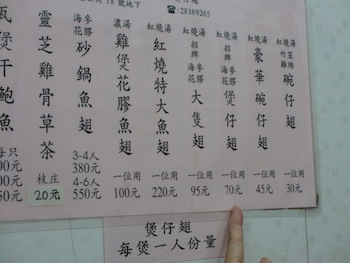 18號地下
☎:28389265
紅燒湯
竹笙
碗仔翅
一位用
30元
紅燒湯
豪華碗仔翅
一位用
45元
紅燒湯
招牌
海參花膠
煲仔翅
一位用
70元
紅燒湯
招牌
海參花膠
大隻翅
一位用
95元
紅燒湯
紅燒特大魚翅
一位用
220元
濃湯
雞煲花膠魚翅
一位用
100元
海參花膠
砂鍋魚翅
3-4人
380元
4-6人
550元
靈芝雞骨草茶
枝庄
20元
煲干鮑魚
每只
煲仔翅
每煲一人份量